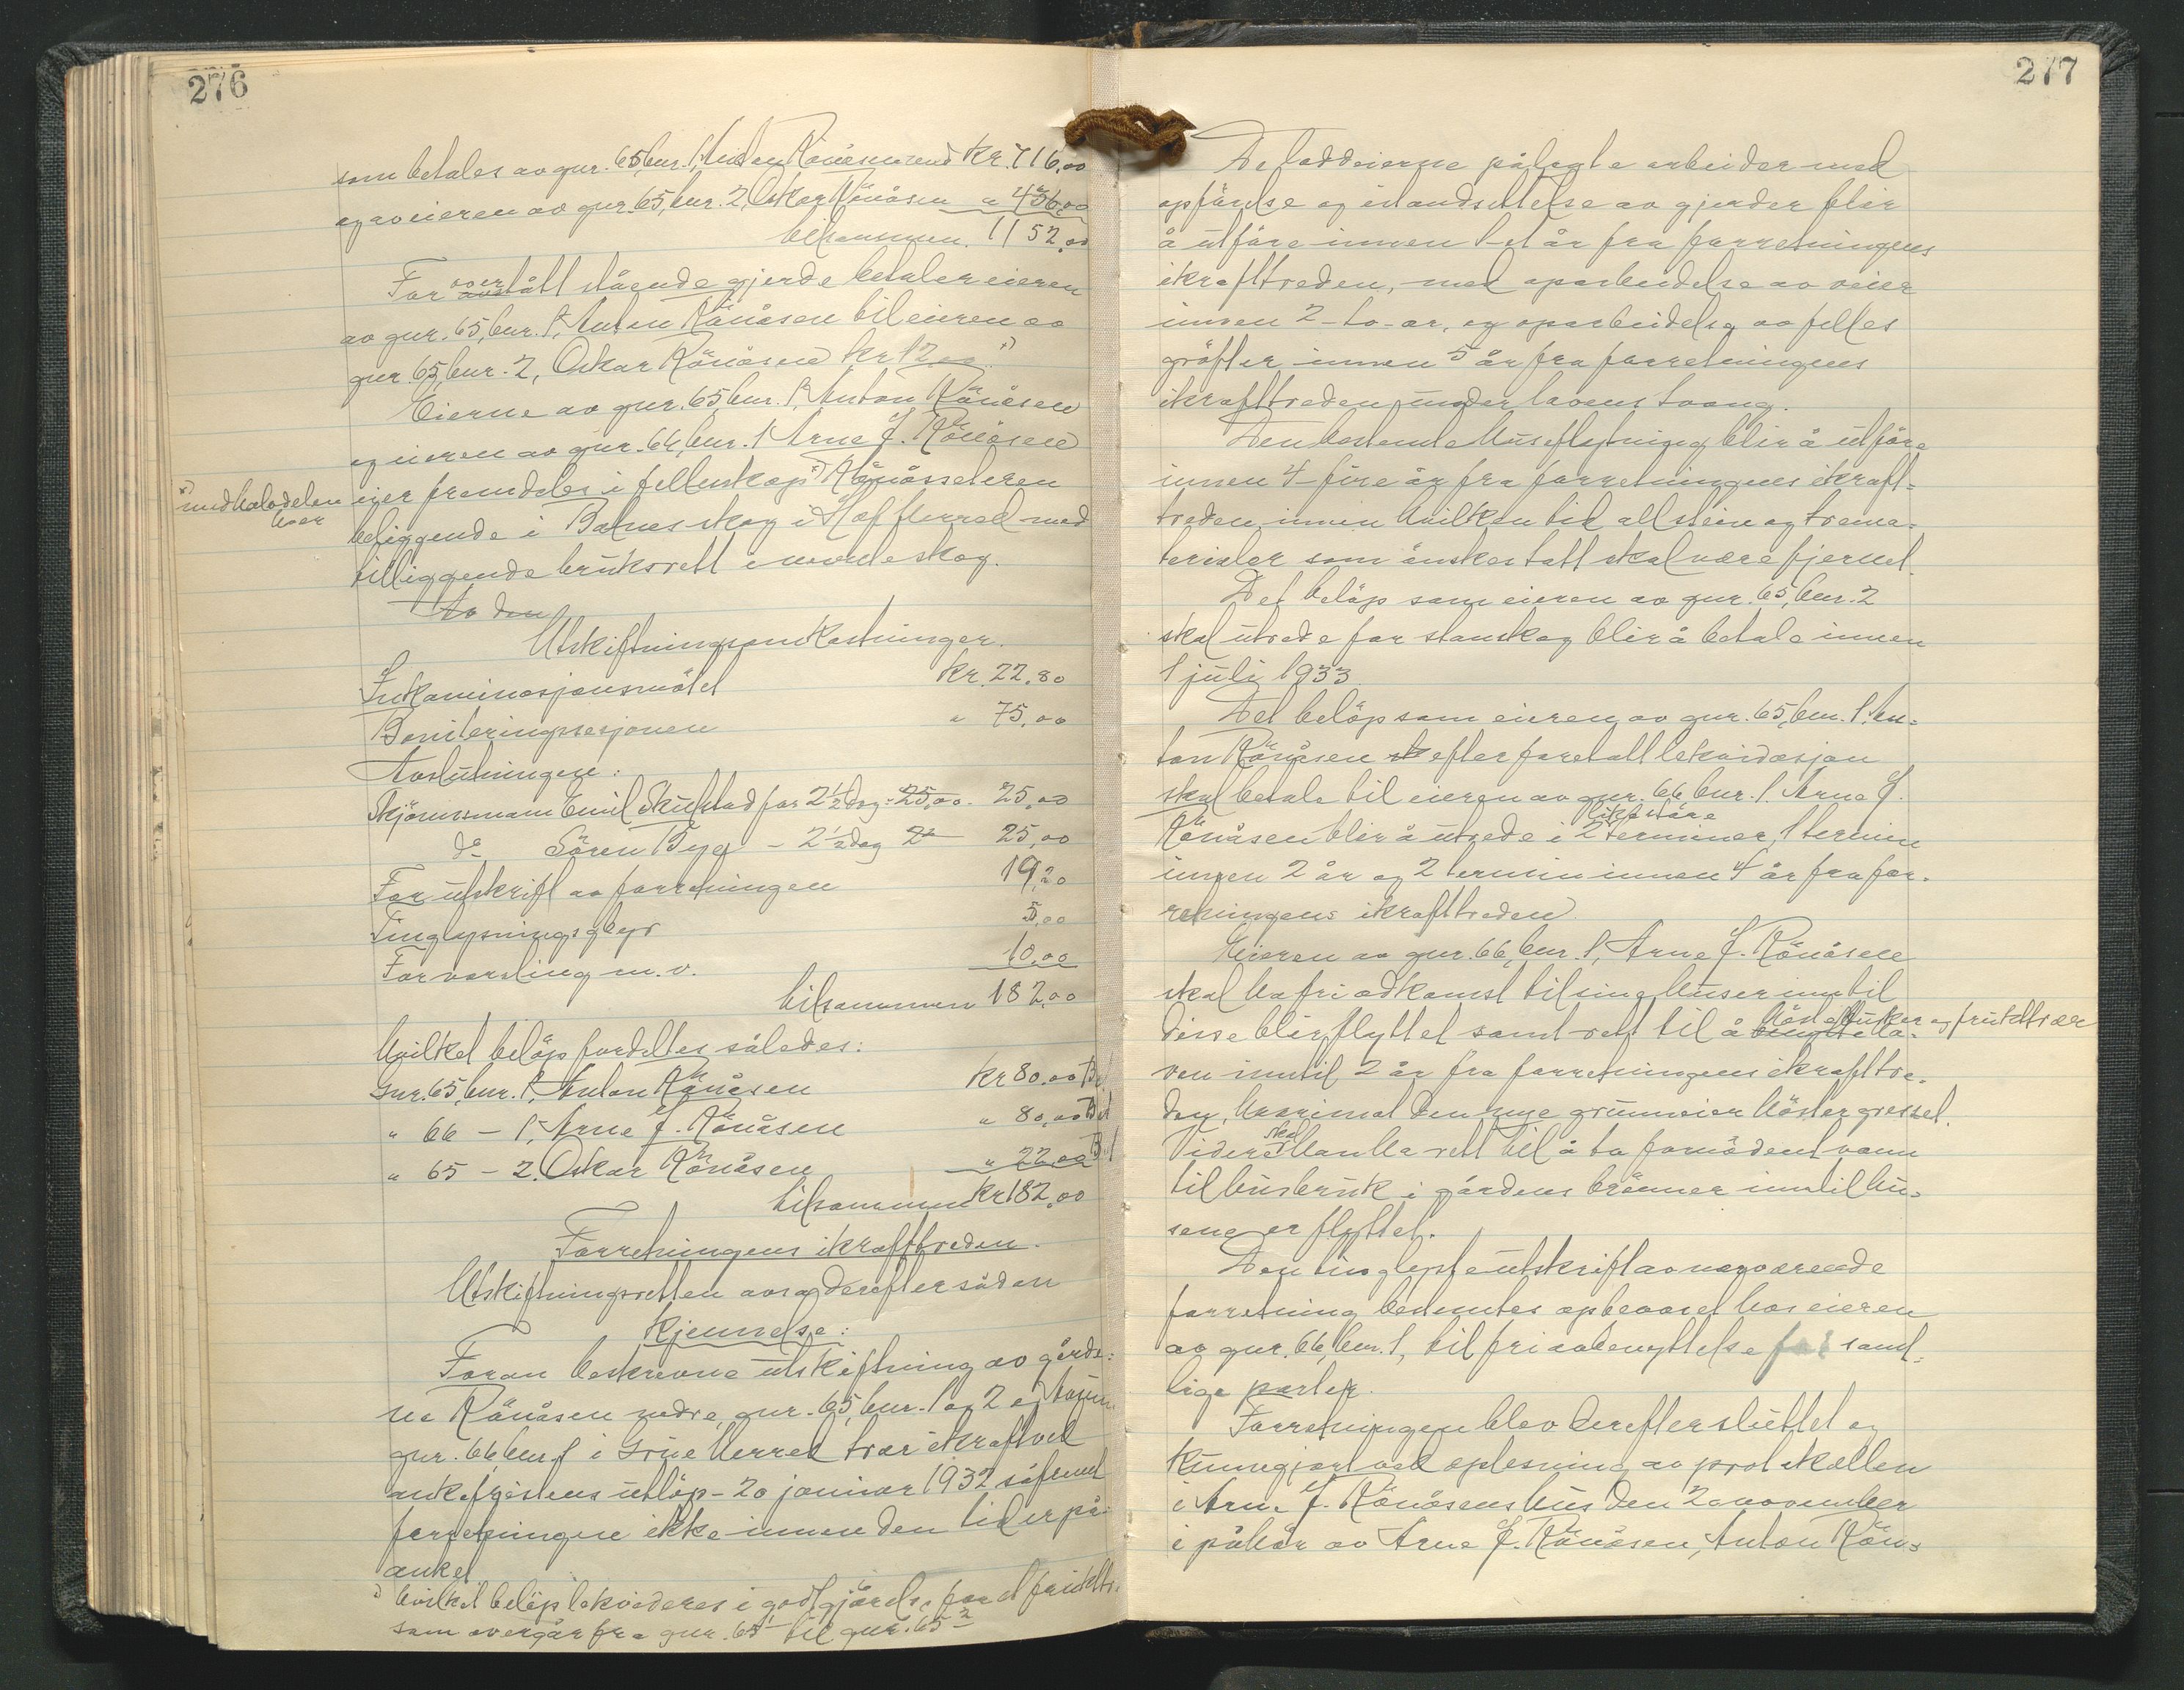 276
som betales av gnr. 65, bnr. 1, Anton Rönåsen med kr. 716,00
og av eieren av gnr. 65, bnr. 2, Oskar Rönåsen " 436,00
tilsammen. 1152,00
For overtatt stående gjerde betaler eieren
av gnr. 65, bnr. 1, Anton Rönåsen til eieren av
gnr. 65, bnr. 2, Oskar Rönåsen kr 12,00 x)
Eierne av gnr. 65, bnr. 1, Anton Rönåsen
og eieren av gnr. 66, bnr. 1 Arne J. Rönåsen
x) med halvdelen
hver
eier fremdeles i fellesskap x) Rönåsseteren
beliggende i Balnesskog i Hof herred med
tilliggende bruksrett i nevnte skog.
Av den
Utskiftningsomkostninger.
Inkaminasjonsmötet kr. 22,80
Boniteringssesjonen " 75,00
Avslutningen:
Skjönnsmann Emil Skulstad for 2½ dag - 25,00. 25,00
do Sören Bye - 2½ dag 2 25,00
For utskrift av forretningen 19,20
Tinglysningsgbyr 5,00
Forvarsling m.v. 10,00
tilsammen 182,00
Hvilket belöp fordeltes således:
Gnr. 65, bnr. 1, Anton Rönåsen kr 80,00 Bet
" 66 - 1, Arne J. Rönåsen " 80,00 Bet
" 65 - 2. Oskar Rönåsen " 22,00 Bet
tilsammen kr 182,00
Forretningens ikrafttreden.
Utskiftningsretten avsa derefter sådan
Kjennelse:
Foran beskrevne utskiftning av gårde=
ne Rönåsen nedre, gnr. 65, bnr. 1 og 2 og
gnr. 66 bnr 1 i Grue herred trær i kraft ved
ankefristens utlöp - 20 januar 1932 såfremt
forretningen ikke innen den tid er på=
anket.
x) hvilket belöp lekvideres i godtgjörelse for et frukttr.
som overgår fra gnr. 65 1 til gnr. 65 2
277
De loddeierne pålagte arbeider med
opförelse og istandsettelse av gjerder blir
å utföre innen 1-et år fra forretningens
ikrafttreden, med oparbeidelse av veier
innen 2-to-år, og oparbeidelse av felles
gröfter innen 5 år fra forretningens
ikrafttreden under lovens tvang.
Den bestemte husflytning blir å utföre
innen 4-fire år fra forretningens ikraft=
treden, innen hvilken tid all stein og trema=
terialer som önskes tatt skal være fjernet.
Det belöp som eieren av gnr. 65, bnr. 2
skal utrede for stanskog blir å betale innen
1 juli 1933.
Det belöp som eieren av gnr. 65, bnr. 1. An=
ton Rönåsen sk efter foretatt lekvidasjon
skal betale til eieren av gnr. 66 bnr. 1. Arne J.
Rönåsen blir å utrede i 2 like store terminer, 1 termin
innen 2 år og 2 termin innen 4 år fra for=
retningens ikrafttreden.
Eieren av gnr. 66, bnr. 1, Arne J. Rönåsen
skal ha fri adkomst til sine huser inntil
disse blir flyttet samt rett til å höste busker og frukttrær
ven inntil 2 år fra forretningens ikrafttre=
den, hvorimot den nye grunneier höster gresset.
Videre skal han ha rett til å ta fornödent vann
til husbruk i gårdens brönner inntil hu=
sene er flyttet.
Den tinglyste utskrift av nærværende
forretning besluttes opbevaret hos eieren
av gnr. 66, bnr. 1, til fri avbenyttelse for samt=
lige parter.
Forretningen blev derefter sluttet og
kunngjort ved oplesning av protokollen
i Arne J. Rönåsens hus den 20 november
i påhör av Arne J. Rönåsen, Anton Rön=